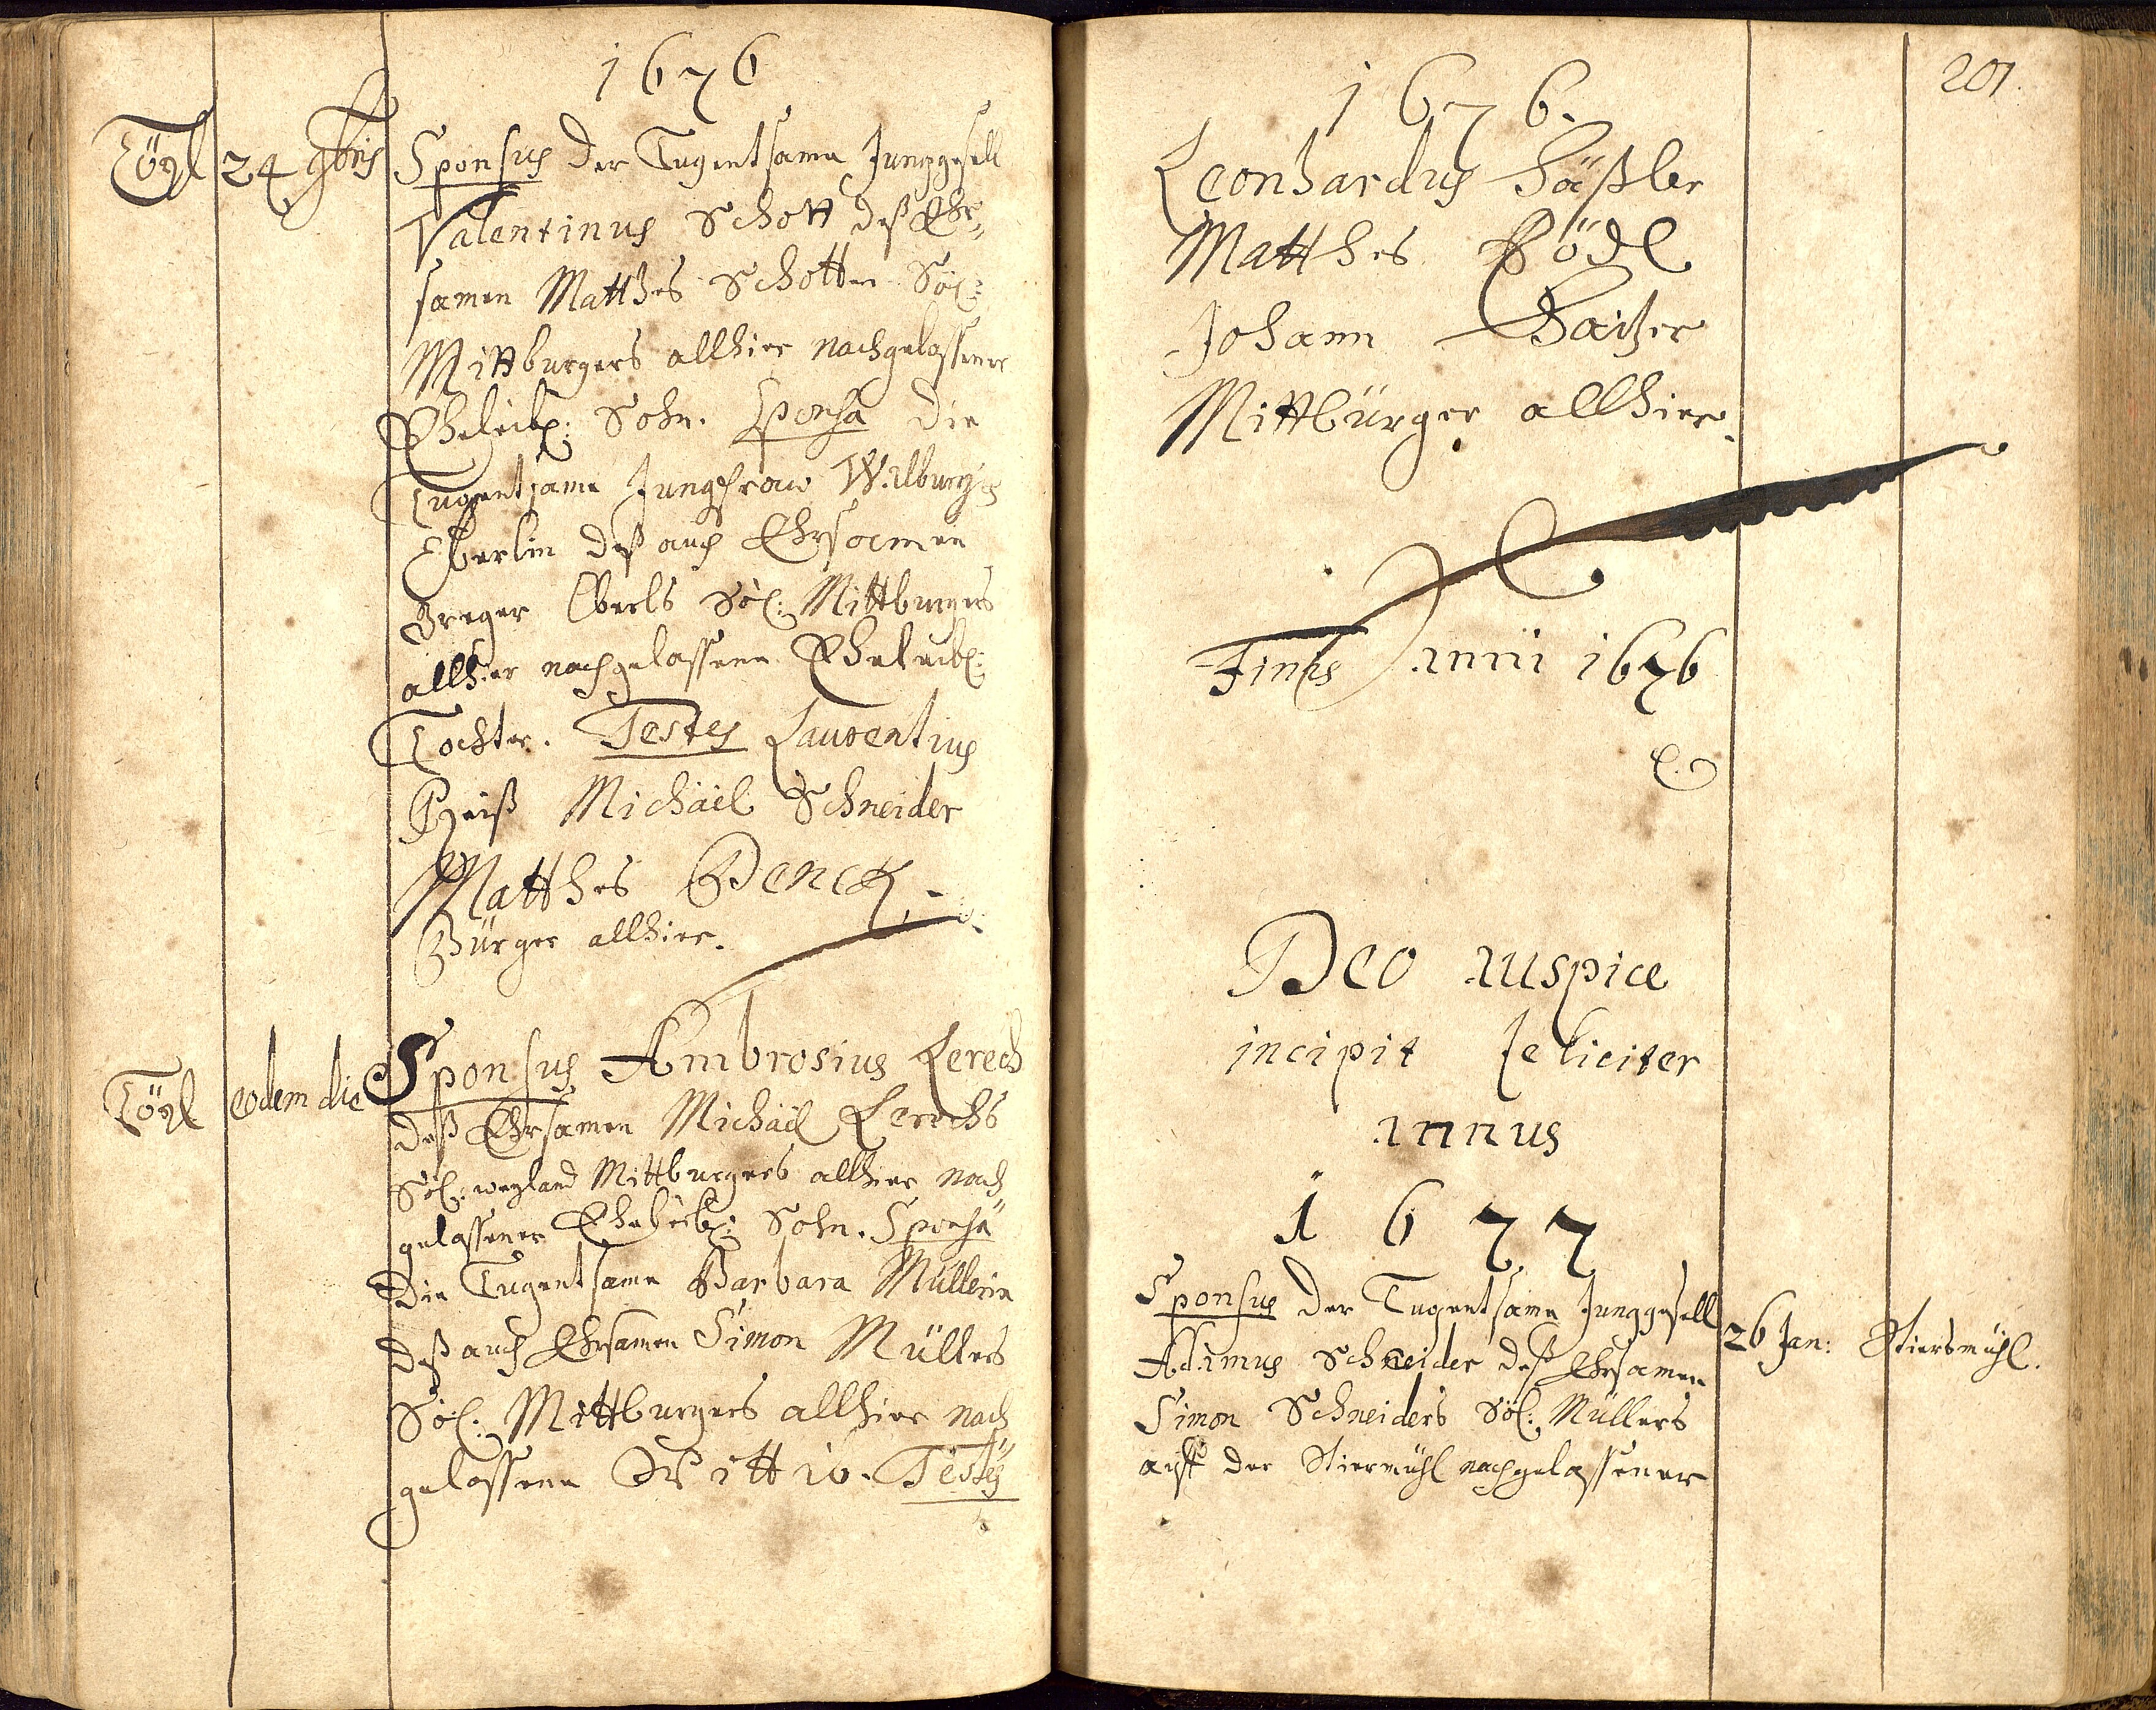 1676
Töpl 24 9bris Sponsus der Tugentsame Junggesell
Valentinus Schott deß Ehr=
samen Matthes Schotten Söl:
Mittburgers allhier nachgelassener
Eheleibl: Sohn. Sponsa die
Tugentsame Jungfraw Walburga
Eberlin deß auch Ehrsamen
Greger Eberls Söl: Mittburgers
allhier nachgelassene Eheleibl:
Tochter. Testes Laurentius
Michäel Schneider
Matthes Denck,
Bürger allhier.
Töpl eodem die Sponsus Ambrosius Lerech
deß Ehrsamen Michäel Lerechs
Söl: weyland Mittburgers allhier nach=
gelassener Eheleibl: Sohn. Sponsa
die Tugentsame Barbara Müllerin
deß auch Ehrsamen Simon Müllers
Söl: Mittburgers allhier nach=
gelassene Wittib. Testes
201.
1676.
Leonhardus
Matthes Pödl
Johann
Mittbürger allhier.
Finis Anni 1676
Deo auspice
incipit feliciter
annus
1677
Sponsus der Tugentsame Junggesell 26 Jan: Stiersmühl.
Adamus Schneider deß Ehrsamen
Simon Schneiders Söl: Müllers
auff der Stiermühl nachgelassener